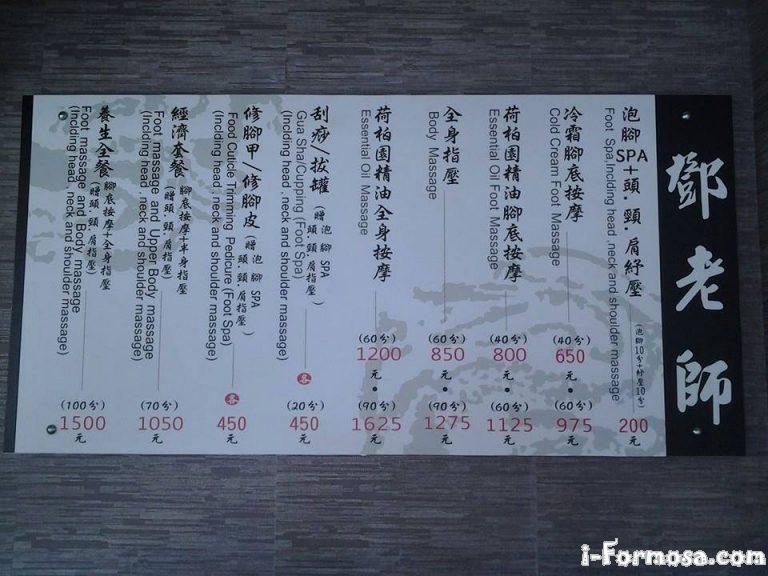 鄧老師
泡腳SPA+頭.頸.肩紓壓
(泡腳10分+紓壓10分)
200元
Foot Spa,Inclding head ,neck and shoulder massage
冷霜腳底按摩
(40分)
650
•
(60分)
975元
Cold Cream Foot Massage
荷柏園精油腳底按摩
(40分)
800
•
(60分)
1125元
Essential Oil Foot Massage
全身指壓
(60分)
850
•
(90分)
1275元
Body Massage
荷柏園精油全身按摩
(60分)
1200
•
(90分)
1625元
Essential Oil Massage
刮痧/拔罐(贈 泡腳SPA 頭頸肩指壓)
(20分)
450元
Gua Sha/Cupping (Foot Spa)
(Inclding head ,neck and shoulder massage)
修腳甲/修腳皮(贈 泡腳SPA 頭頸肩指壓)
450元
Food Cuticle Trimming Pedicure (Foot Spa)
(Inclding head ,neck and shoulder massage)
經濟套餐 腳底按摩+半身指壓
(贈頭.頸.肩指壓)
(70分)
1050元
Foot massage and Upper Body massage
(Inclding head ,neck and shoulder massage)
養生全餐 腳底按摩+全身指壓
(贈頭.頸.肩指壓)
(100分)
1500元
Foot massage and Body massage
(Inclding head ,neck and shoulder massage)
i-Formosa.com